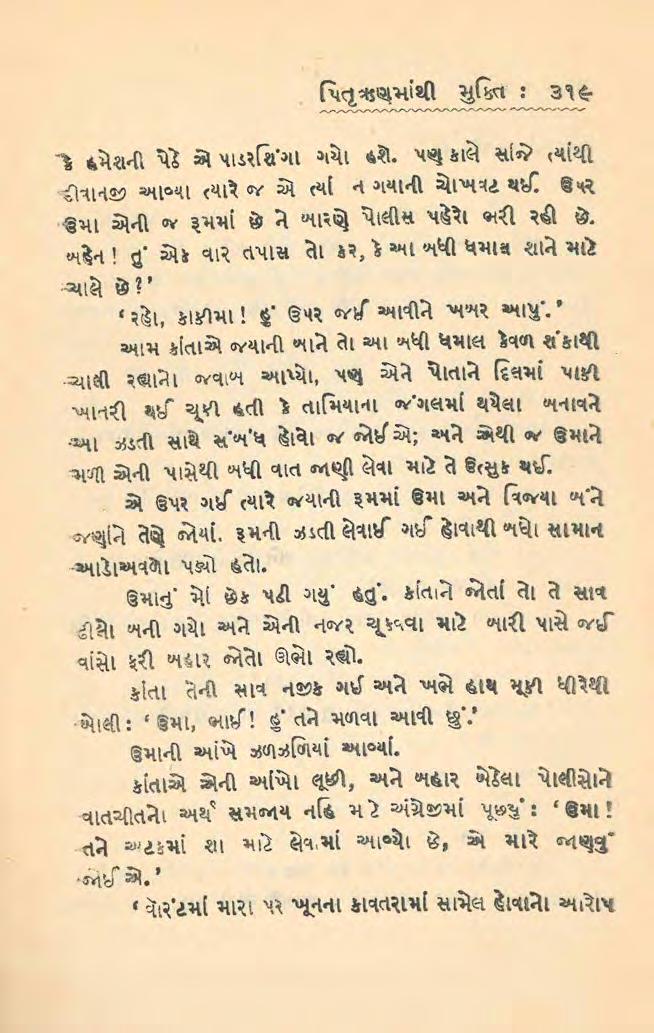 પિતૃઋણમાંથી મુક્તિ : ૩૧૯
કે હમેશની પેઠે એ પાડરશિંગા ગયો હશે. પણ કાલે સાંજે ત્યાંથી
દીવાનજી આવ્યા ત્યારે જ એ ત્યાં ન ગયાની ચોખવટ થઈ. ઉપર
ઉમા એની જ રૂમમાં છે ને બારણે પોલીસ પહેરો ભરી રહી છે.
બહેન! તું એક વાર તપાસ તો કર, કે આ બધી ધમાલ શાને માટે
ચાલે છે?’
‘રહો, કાકીમા! હું ઉપર જઈ આવીને ખબર આપું.’
આમ કાંતાએ જયાની બાને તો આ બધી ધમાલ કેવળ શંકાથી
ચાલી રહ્યાનો જવાબ આપ્યો, પણ એને પોતાને દિલમાં પાકી
ખાતરી થઈ ચૂકી હતી કે તામિયાના જંગલમાં થયેલા બનાવને
આ ઝડતી સાથે સંબંધ હોવો જ જોઈએ; અને એથી જ ઉમાને
મળી એની પાસેથી બધી વાત જાણી લેવા માટે તે ઉત્સુક થઈ.
એ ઉપર ગઈ ત્યારે જયાની રૂમમાં ઉમા અને વિજયા બંને
જણાંને તેણે જોયાં. રૂમની ઝડતી લેવાઈ ગઈ હોવાથી બધો સામાન
આડોઅવળો પડ્યો હતો.
ઉમાનું મોં છેક પડી ગયું હતું. કાંતાને જોતાં તો તે સાવ
ઢીલો બની ગયો અને એની નજર ચૂકવવા માટે બારી પાસે જઈ
વાંસો ફરી બહાર જોતો ઊભો રહ્યો.
કાંતા તેની સાવ નજીક ગઈ અને ખભે હાથ મૂકી ધીરેથી
બોલી: ‘ઉમા, ભાઈ! હું તને મળવા આવી છું.’
ઉમાની આંખે ઝળઝળિયાં આવ્યાં.
કાંતાએ એની આંખો લૂછી, અને બહાર બેઠેલા પોલીસોને
વાતચીતનો અર્થ સમજાય નહિ માટે અંગ્રેજીમાં પૂછ્યું: ‘ઉમા!
તને અટકમાં શા માટે લેવામાં આવ્યો છે, એ મારે જાણવું
જોઈએ.’
‘વૉરંટમાં મારા પર ખૂનના કાવતરામાં સામેલ હોવાનો આરોપ